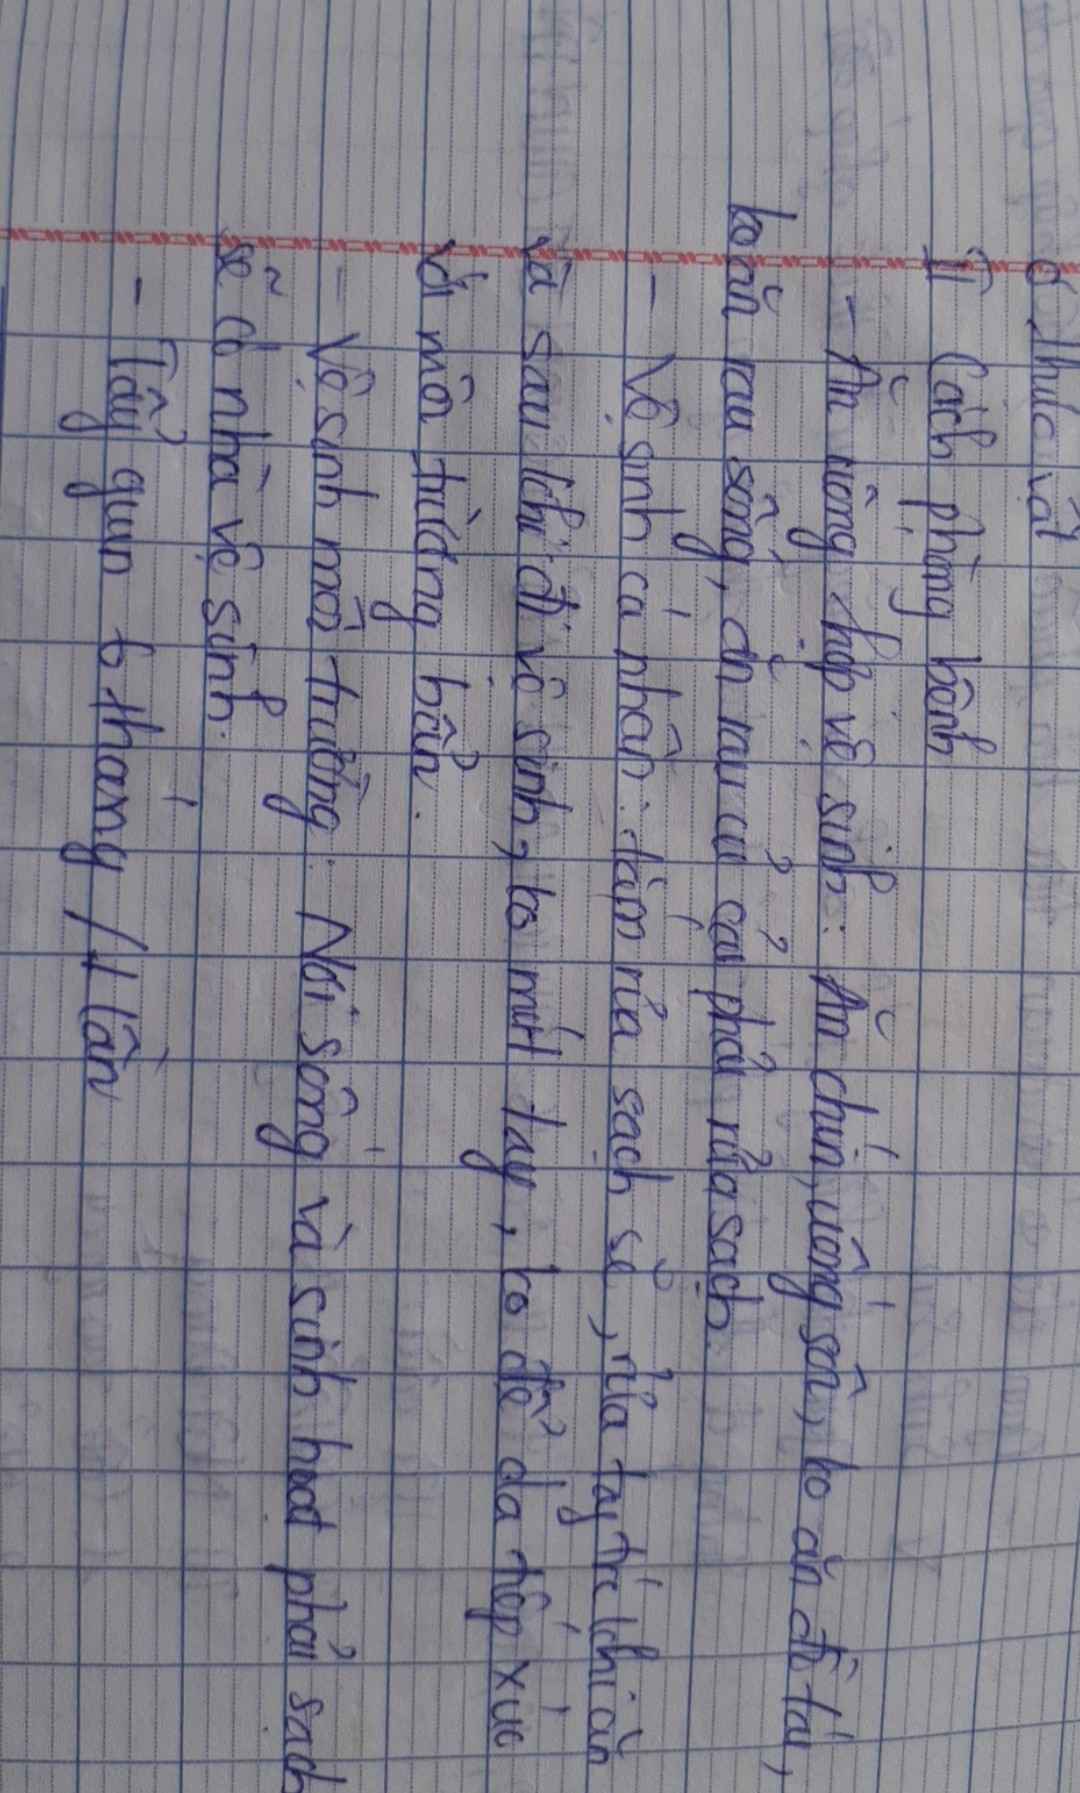 ở thực vật
II Cách phòng bệnh
- Ăn uống hợp vệ sinh: Ăn chín, uống sôi, ko ăn đồ tái,
ko ăn rau sống, ăn rau củ quả phải rửa sạch.
- Vệ sinh cá nhân: tắm rửa sạch sẻ, rửa tay trc khi ăn
và sau khi đi vệ sinh, ko mút tay, ko để da tiếp xúc
với môi trường bẩn.
- Vệ sinh môi trường: Nơi sống và sinh hoạt phải sạch
sẽ có nhà vệ sinh.
- Tẩy giun 6 tháng / 1 lần